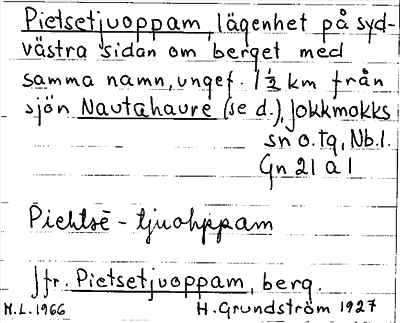 Pietsetjuoppam, lägenhet på syd-
västra sidan om berget med
samma namn, ungef. 1 1/2 km från
sjön Nautahaure (se d.), Jokkmokks
sn o. tg, Nb.l.
Gn 21 a 1
Piehtsē - tjuohppam
Jfr. Pietsetjuoppam, berg.
M.L. 1966 H. Grundström 1927